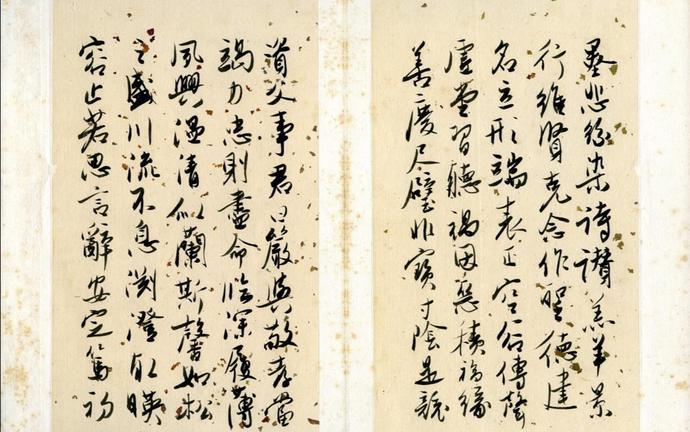 墨悲絲染詩讃羔羊景
行維賢克念作聖德建
名立形端表正空谷傳聲
虛堂習聽禍因惡積福緣
善慶尺璧非寶寸陰是競
資父事君曰嚴與敬孝當
竭力忠則盡命臨深履薄
夙興溫清似蘭斯馨如松
之盛川流不息淵澄取映
容止若思言辭安定篤初